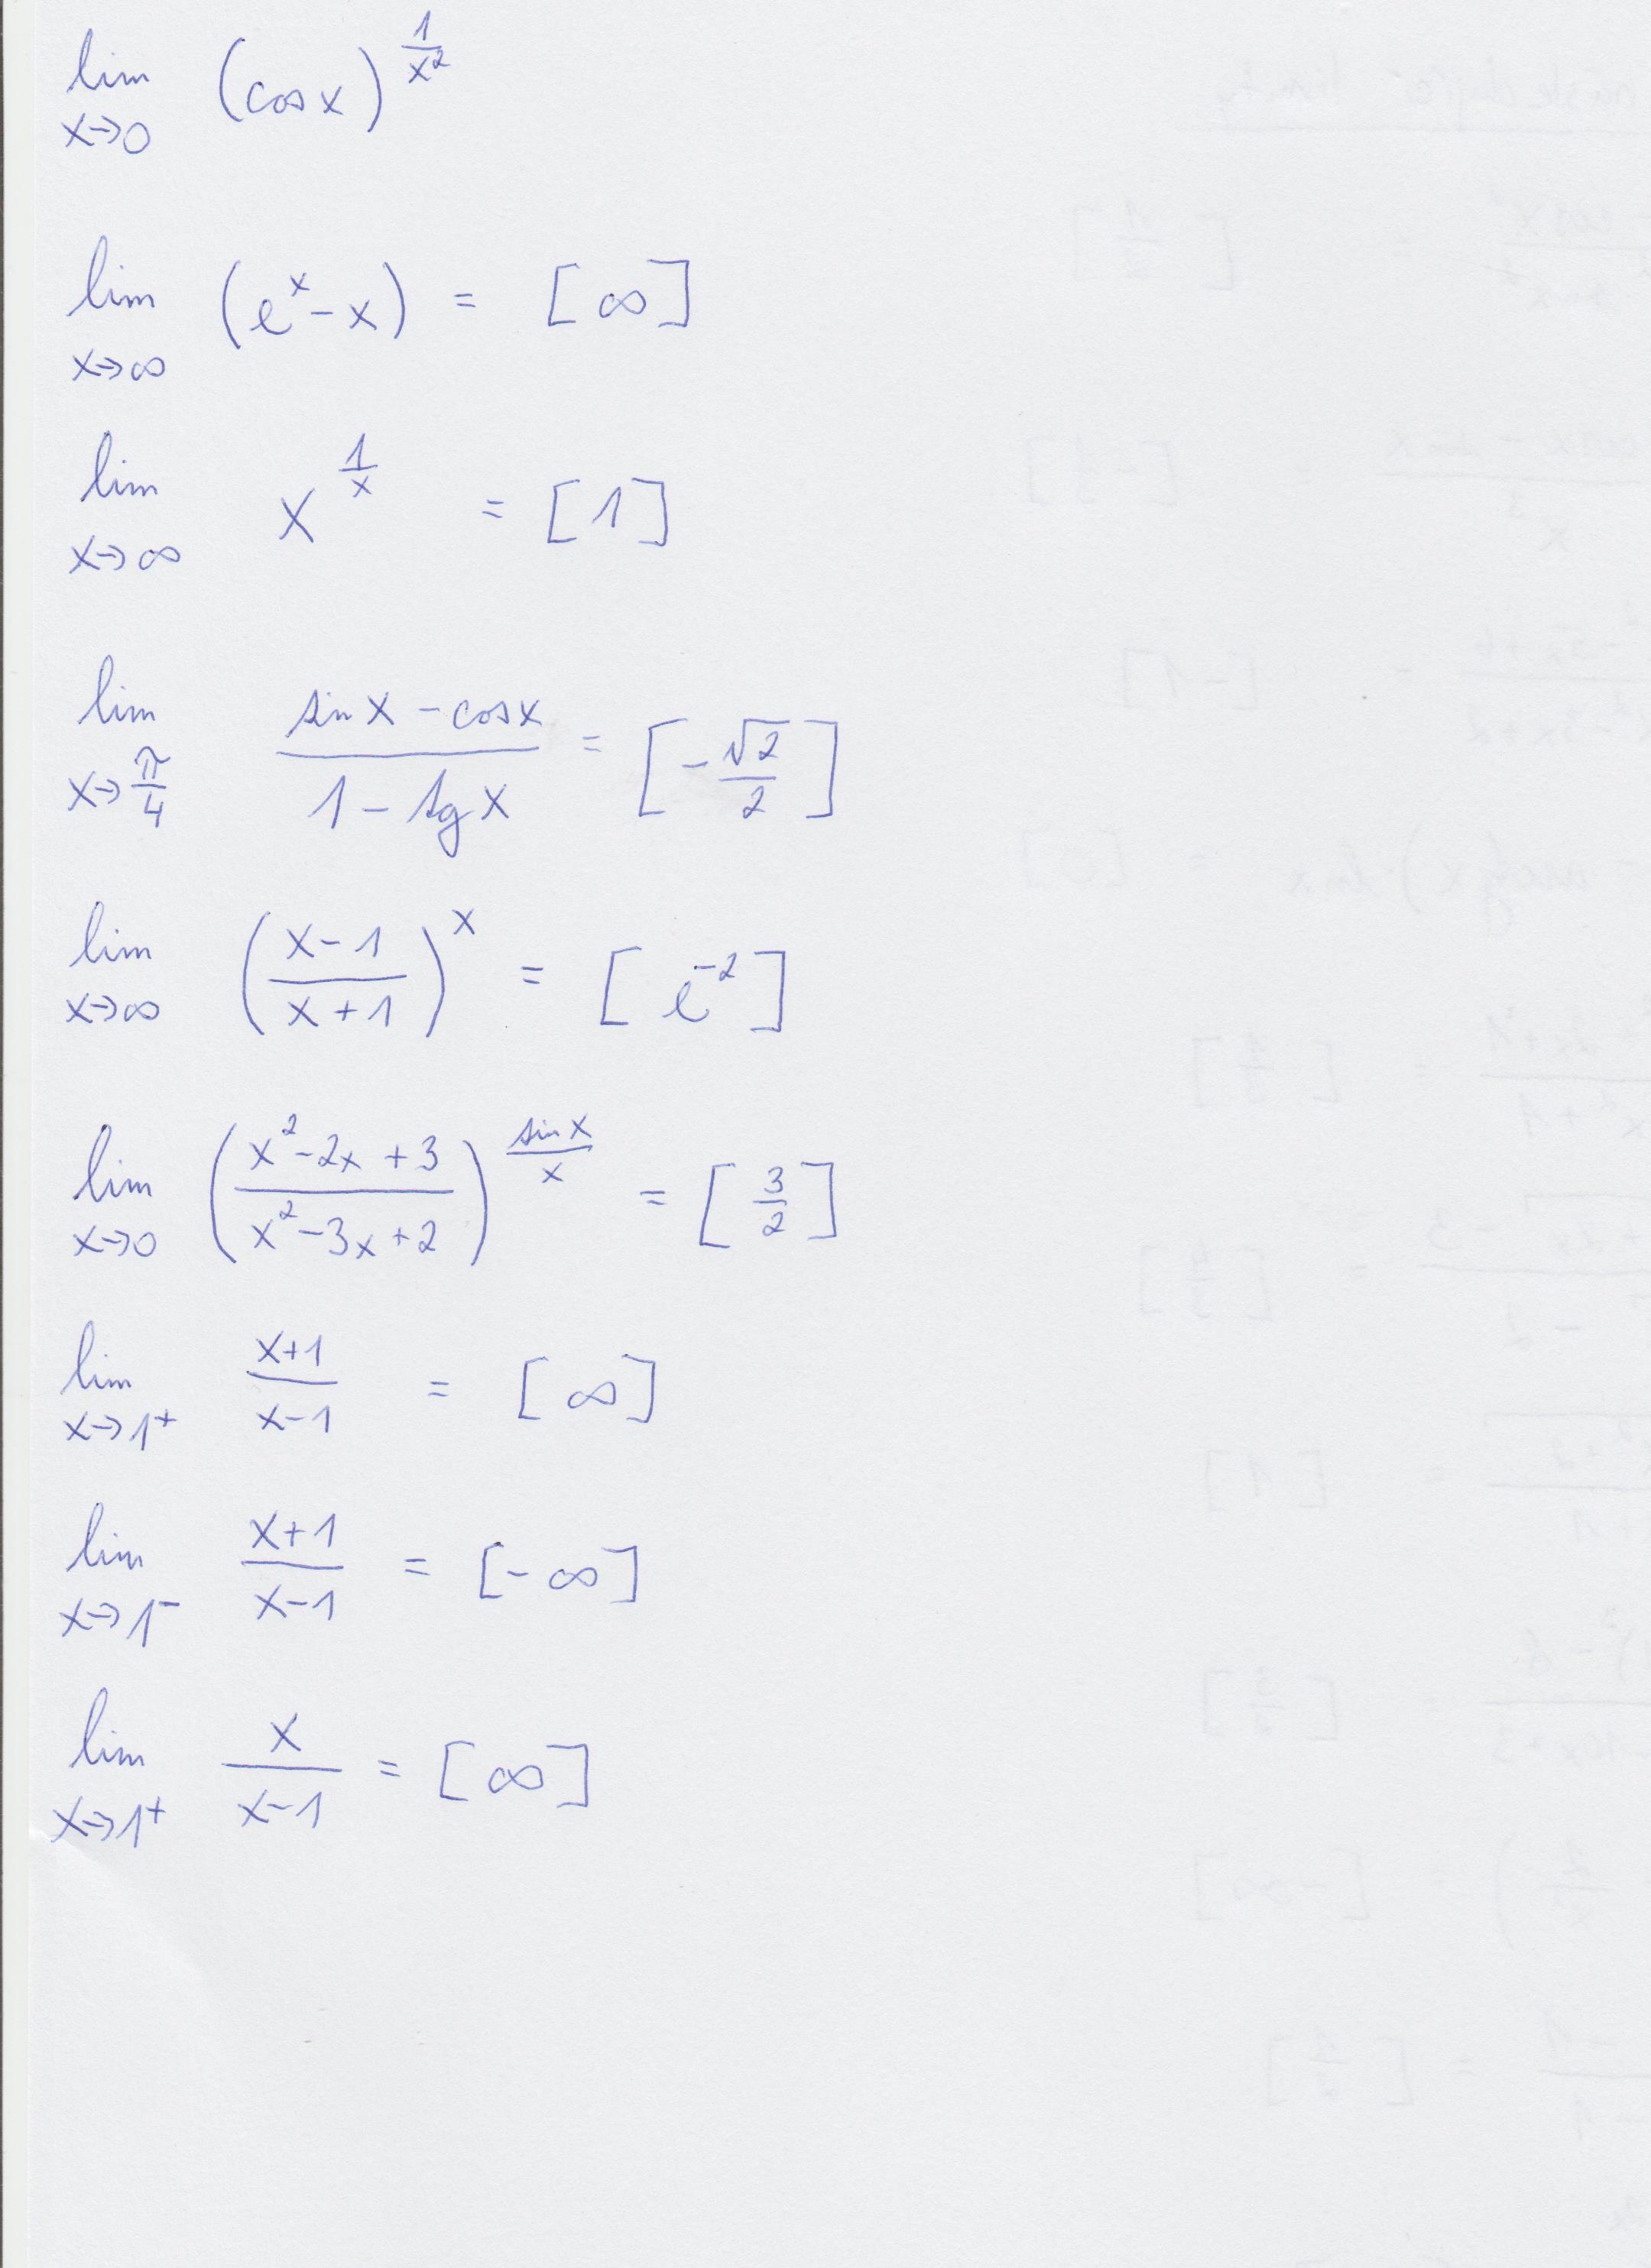 lim x→0 (cos x)^(1/x²)
lim x→∞ (e^x - x) = [∞]
lim x→∞ x^(1/x) = [1]
lim x→π/4 (sin x - cos x)/(1 - tg x) = [-√2/2]
lim x→∞ ((x-1)/(x+1))^x = [e^-2]
lim x→0 ((x²-2x+3)/(x²-3x+2))^(sin x/x) = [3/2]
lim x→1+ (x+1)/(x-1) = [∞]
lim x→1- (x+1)/(x-1) = [-∞]
lim x→1+ x/(x-1) = [∞]